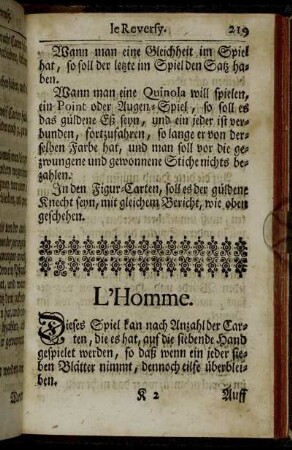 le Reversy. 219
Wann man eine Gleichheit im Spiel
hat, so soll der letzte im Spiel den Satz ha-
ben.
Wann man eine Quinola will spielen,
ein Point oder Augen-Spiel, so soll es
das güldene Eß seyn, und ein jeder ist ver-
bunden, fortzufahren, so lange er von der-
selben Farbe hat, und man soll vor die ge-
zwungene und gewonnene Stiche nichts be-
zahlen.
In den Figur-Carten, soll es der güldene
Knecht seyn, mit gleichem Bericht, wie oben
geschehen.
L'Homme.
Dieses Spiel kan nach Anzahl der Car-
ten, die es hat, auf die siebende Hand
gespielet werden, so daß wenn ein jeder sie-
ben Blätter nimmt, dennoch eilfe überblei-
ben.
K 2 Auff